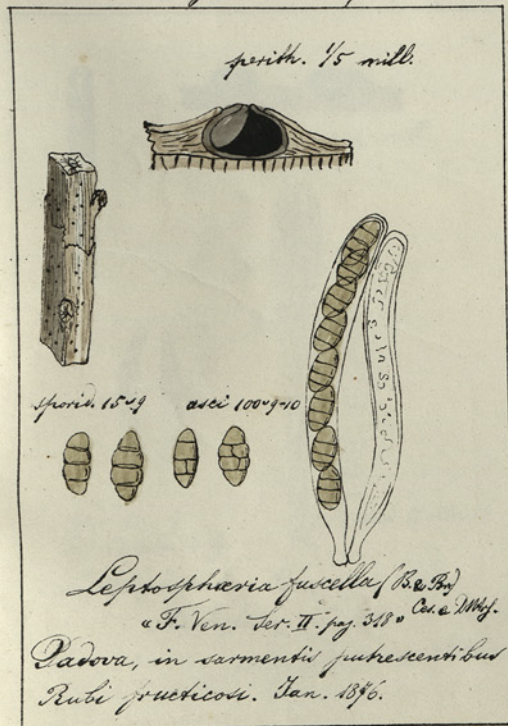 perith. 1/5 mill.
sporid. 15 υ 9 asci 100 υ 9-10
Leptosphæria fuscella (B. & Br.)
Ces. e DNtrs.
« F. Ven. Ser. II. pag. 318 »
Padova, in sarmentis putrescentibus
Rubi fructicosi. Jan. 1876.